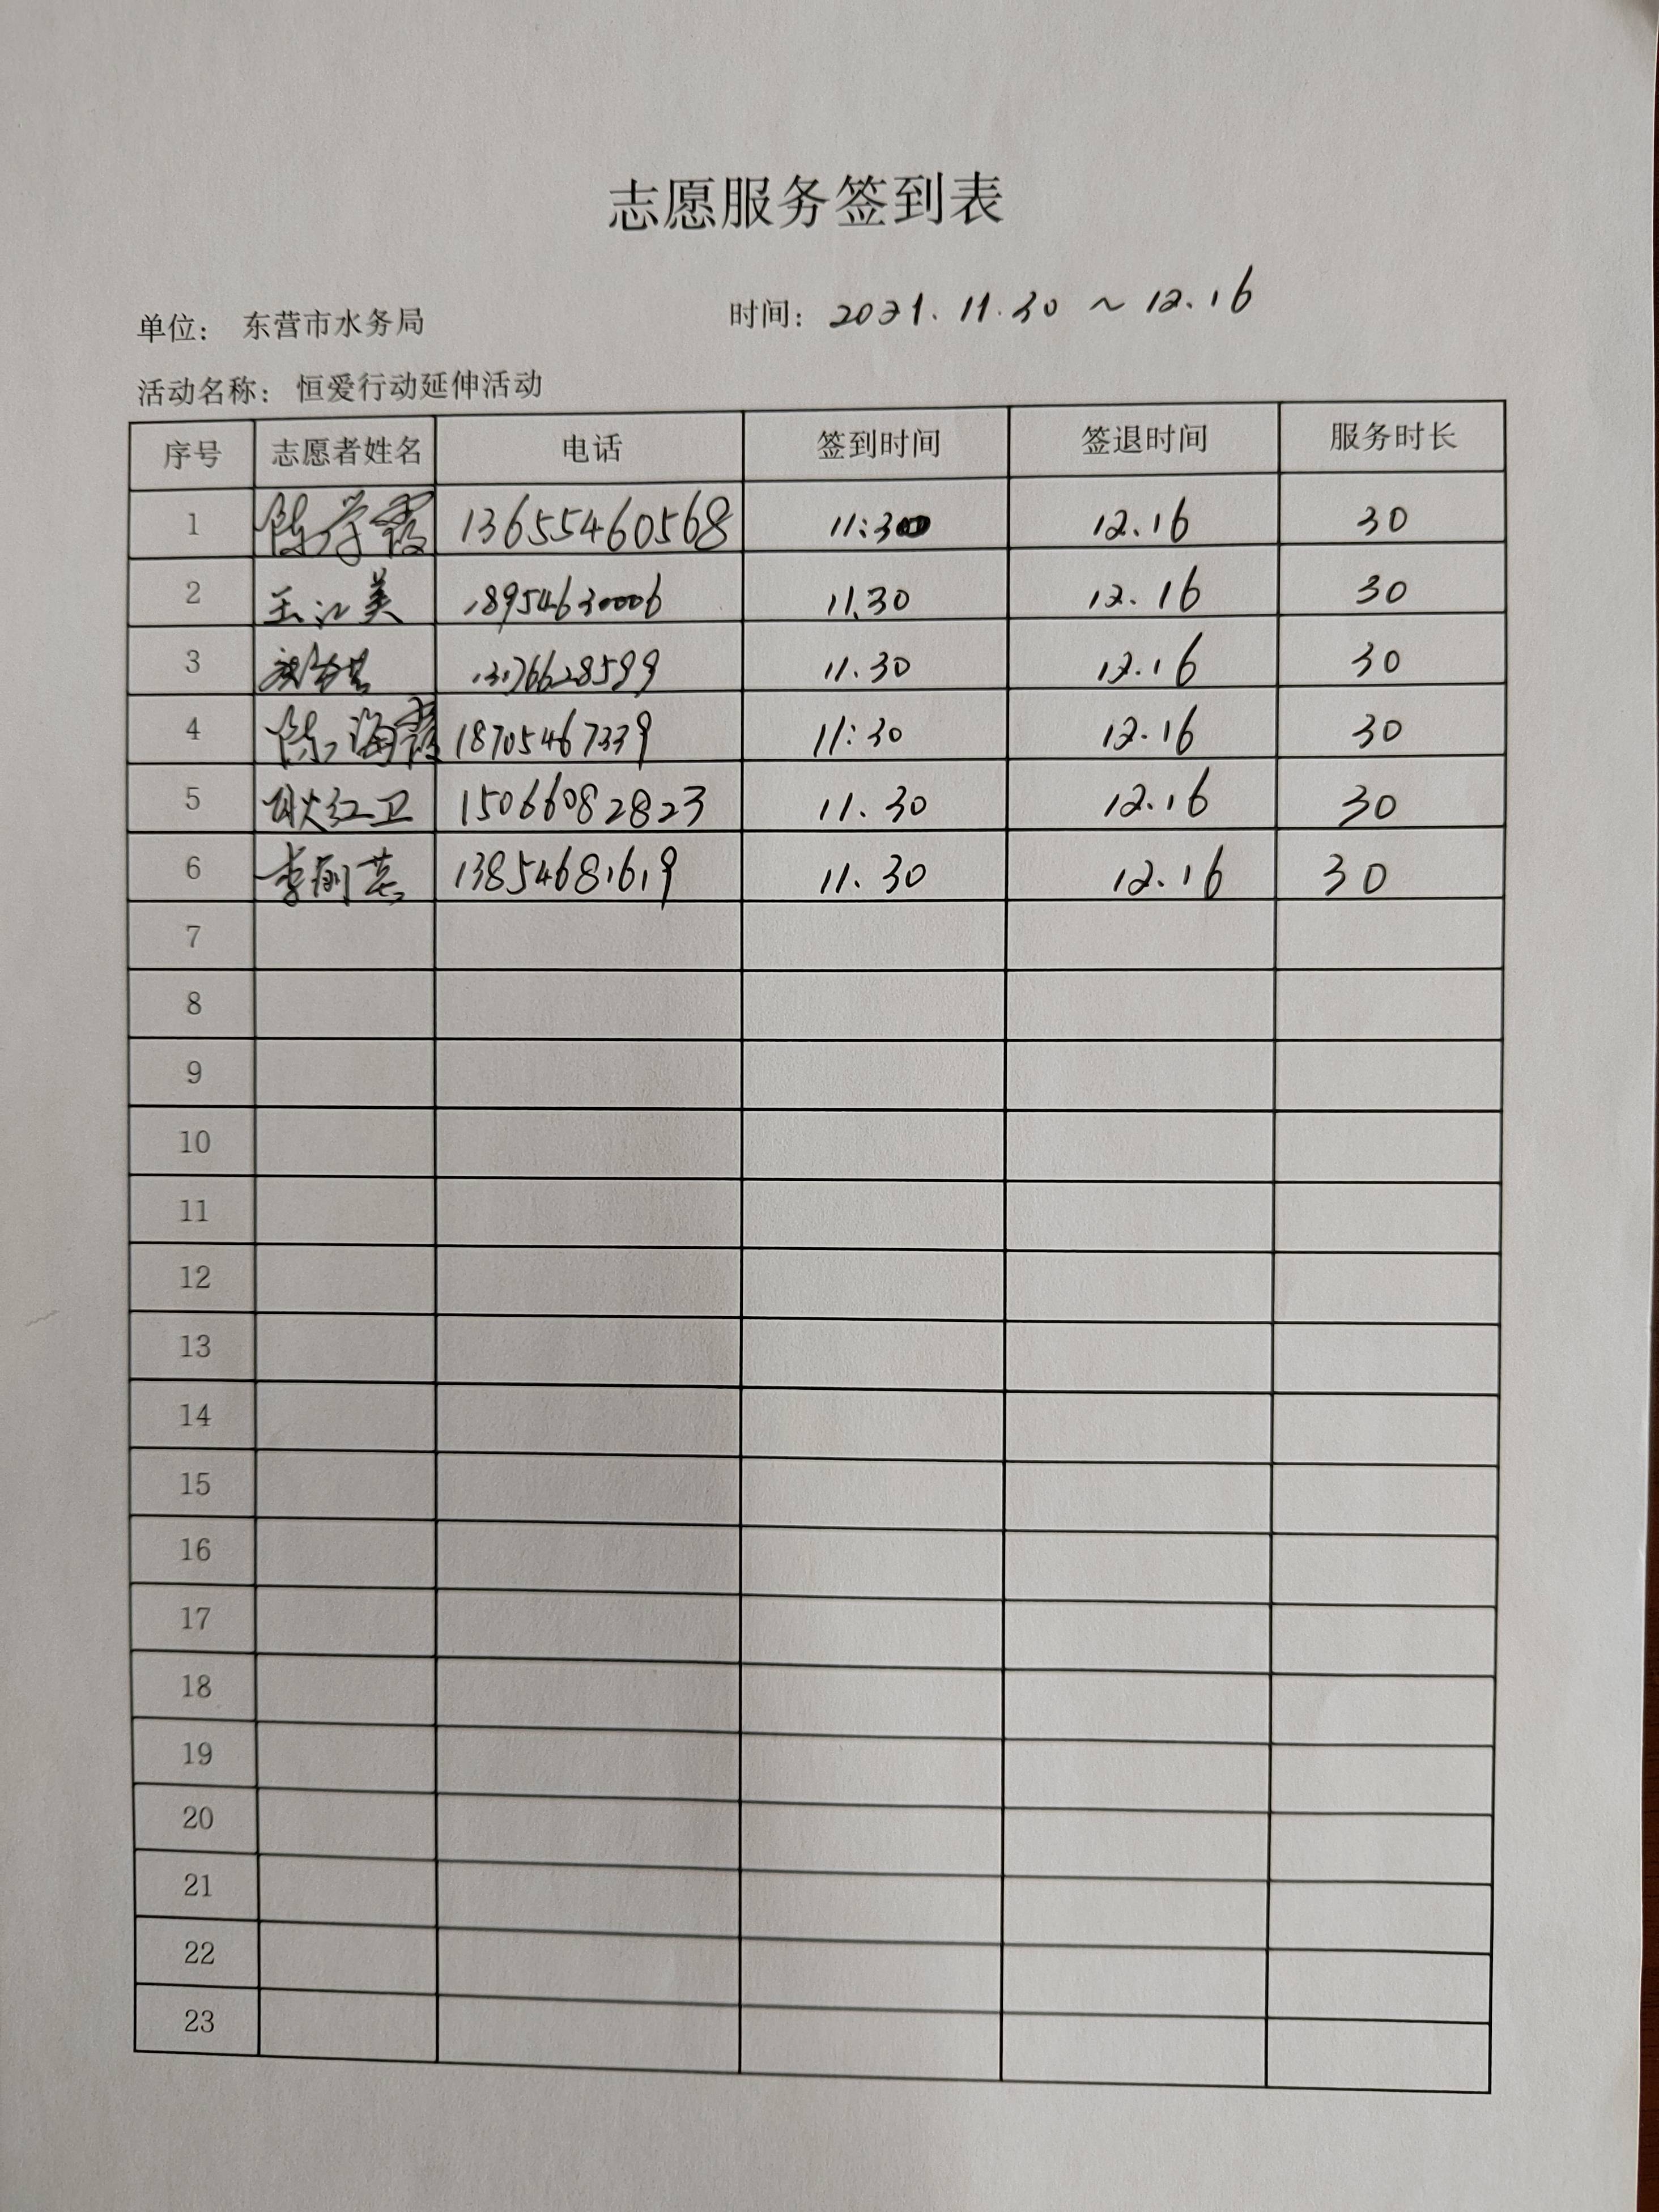 志愿服务签到表
单位： 东营市水务局 时间：2021.11.30 ~ 12.16
活动名称： 恒爱行动延伸活动
序号 志愿者姓名 电话 签到时间 签退时间 服务时长
1 陈学霞 13655460568 11:30 12.16 30
2 王江美 18954630006 11.30 12.16 30
3 13176628599 11.30 12.16 30
4 陈海霞 18705467339 11:30 12.16 30
5 耿红卫 15066082823 11.30 12.16 30
6 李丽芸 13854681619 11.30 12.16 30
7
8
9
10
11
12
13
14
15
16
17
18
19
20
21
22
23